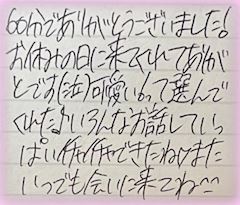 60分でありがとうございました!
お休みの日に来てくれてありが
とです(泣)可愛いって選んで
くれた♪いろんなお話していっ
ぱいイチャイチャできたねまた
いつでも会いに来てね^^